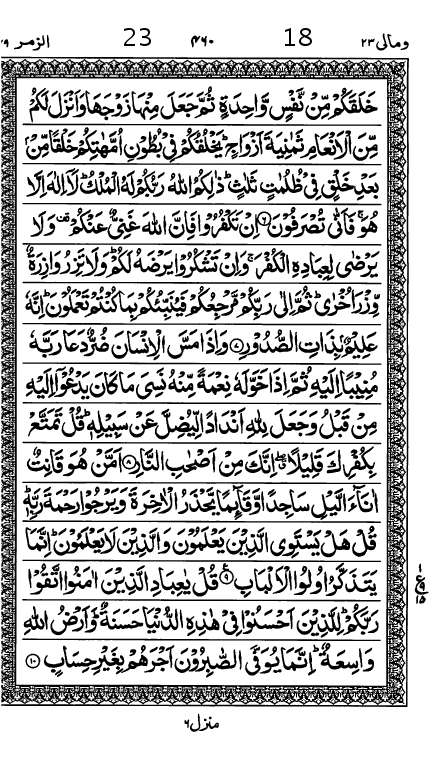 ومالی ۲۳ 18 ۴۶۰ 23 الزمر ۳۹
خَلَقَكُمْ مِّنْ نَّفْسٍ وَّاحِدَةٍ ثُمَّ جَعَلَ مِنْهَا زَوْجَهَا وَاَنْزَلَ لَكُمْ
مِّنَ الْاَنْعَامِ ثَمٰنِيَةَ اَزْوَاجٍ ؕ يَخْلُقُكُمْ فِیْ بُطُوْنِ اُمَّهٰتِكُمْ خَلْقًا مِّنْۢ
بَعْدِ خَلْقٍ فِیْ ظُلُمٰتٍ ثَلٰثٍ ؕ ذٰلِكُمُ اللّٰهُ رَبُّكُمْ لَهُ الْمُلْكُ ؕ لَاۤ اِلٰهَ اِلَّا
هُوَ ۚ فَاَنّٰی تُصْرَفُوْنَ ﴿۶﴾ اِنْ تَكْفُرُوْا فَاِنَّ اللّٰهَ غَنِیٌّ عَنْكُمْ ۫ وَلَا
يَرْضٰی لِعِبَادِهِ الْكُفْرَ ۚ وَاِنْ تَشْكُرُوْا يَرْضَهُ لَكُمْ ؕ وَلَا تَزِرُ وَازِرَةٌ
وِّزْرَ اُخْرٰی ؕ ثُمَّ اِلٰی رَبِّكُمْ مَّرْجِعُكُمْ فَيُنَبِّئُكُمْ بِمَا كُنْتُمْ تَعْمَلُوْنَ ؕ اِنَّهٗ
عَلِيْمٌۢ بِذَاتِ الصُّدُوْرِ ﴿۷﴾ وَاِذَا مَسَّ الْاِنْسَانَ ضُرٌّ دَعَا رَبَّهٗ
مُنِيْبًا اِلَيْهِ ثُمَّ اِذَا خَوَّلَهٗ نِعْمَةً مِّنْهُ نَسِیَ مَا كَانَ يَدْعُوْۤا اِلَيْهِ
مِنْ قَبْلُ وَجَعَلَ لِلّٰهِ اَنْدَادًا لِّيُضِلَّ عَنْ سَبِيْلِهٖ ؕ قُلْ تَمَتَّعْ
بِكُفْرِكَ قَلِيْلًا ۖ اِنَّكَ مِنْ اَصْحٰبِ النَّارِ ﴿۸﴾ اَمَّنْ هُوَ قَانِتٌ
اٰنَآءَ الَّيْلِ سَاجِدًا وَّقَآئِمًا يَّحْذَرُ الْاٰخِرَةَ وَيَرْجُوْا رَحْمَةَ رَبِّهٖ ؕ
قُلْ هَلْ يَسْتَوِی الَّذِيْنَ يَعْلَمُوْنَ وَالَّذِيْنَ لَا يَعْلَمُوْنَ ؕ اِنَّمَا
يَتَذَكَّرُ اُولُوا الْاَلْبَابِ ﴿۹﴾ قُلْ يٰعِبَادِ الَّذِيْنَ اٰمَنُوا اتَّقُوْا
رَبَّكُمْ ؕ لِلَّذِيْنَ اَحْسَنُوْا فِیْ هٰذِهِ الدُّنْيَا حَسَنَةٌ ؕ وَاَرْضُ اللّٰهِ
وَاسِعَةٌ ؕ اِنَّمَا يُوَفَّی الصّٰبِرُوْنَ اَجْرَهُمْ بِغَيْرِ حِسَابٍ ﴿۱۰﴾
منزل ۶